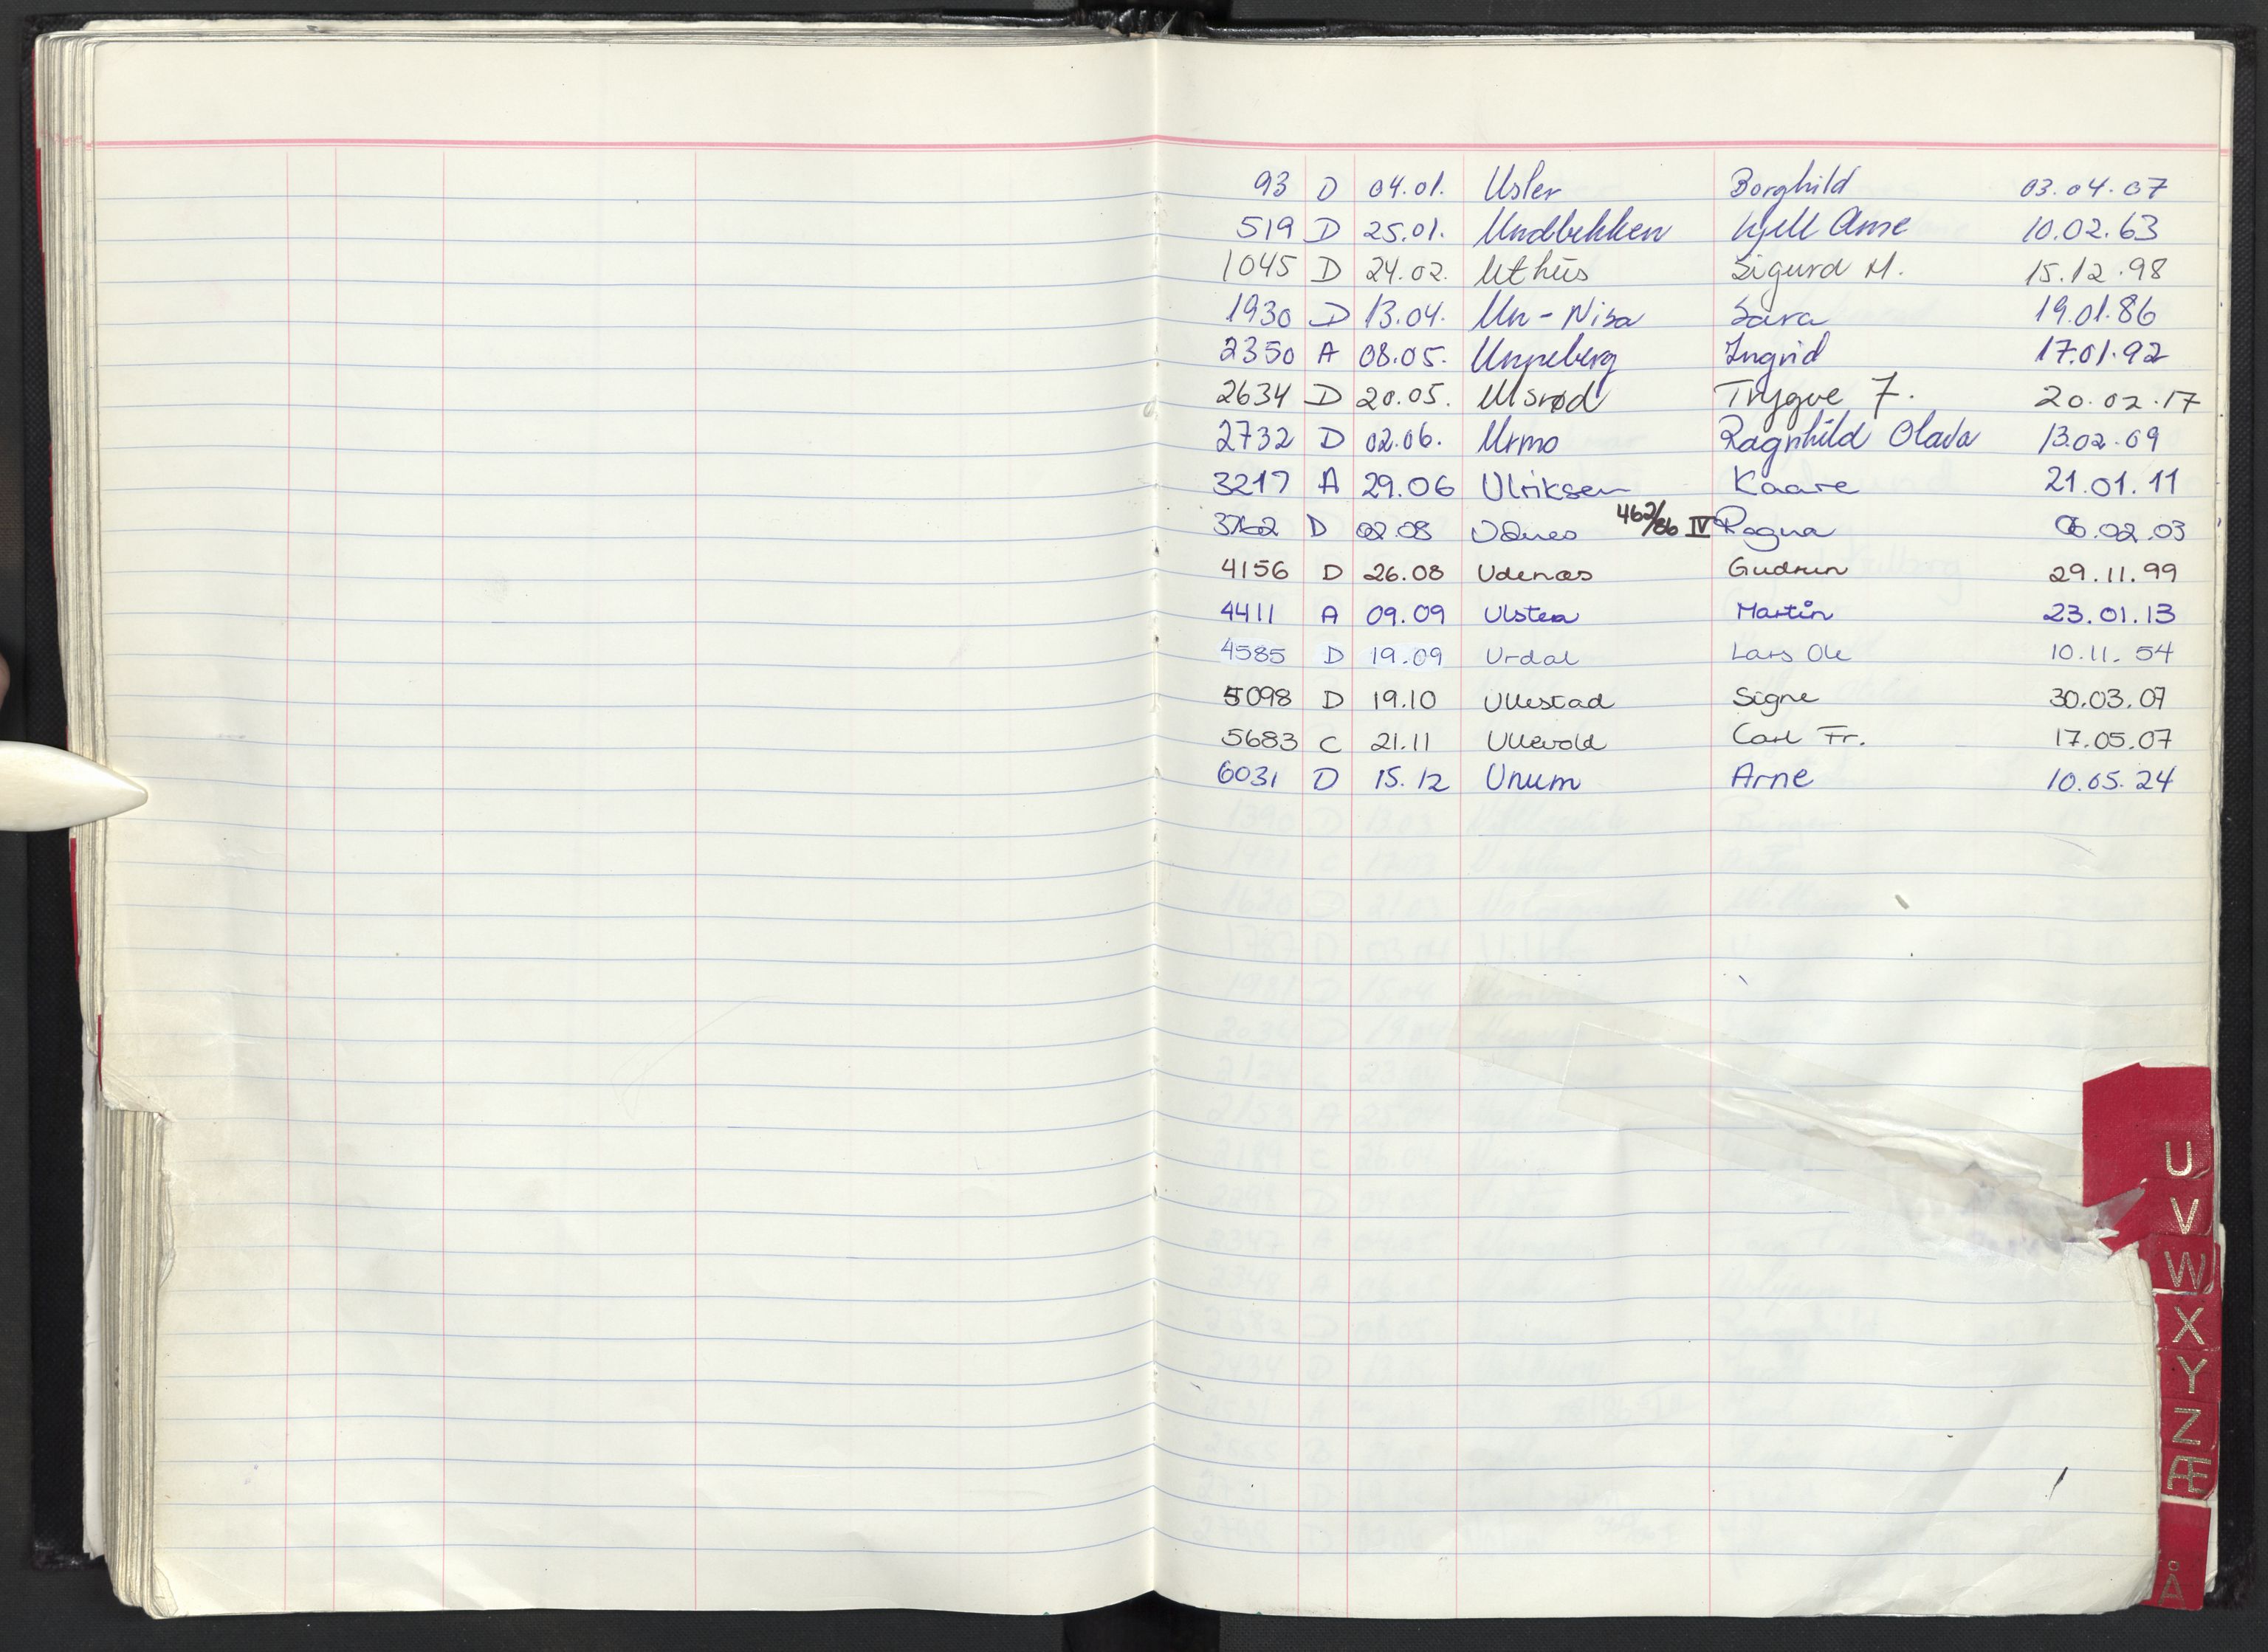 93 D 04.01. Usler Borghild 03.04.07
519 D 25.01. Undbekken Kjell Arne 10.02.63
1045 D 24.02. Uthus Sigurd M. 15.12.98
1930 D 13.04. Un-Nisa Sara 19.01.86
2350 A 08.05. Unneberg Ingrid 17.01.92
2634 D 20.05. Ulsrød Trygve F. 20.02.17
2732 D 02.06. Urmo Ragnhild Olava 13.02.09
3217 A 29.06 Ulriksen Kaare 21.01.11
3762 D 02.08 Udnes 462/86 IV Ragna 06.02.03
4156 D 26.08 Udenæs Gudrun 29.11.99
4411 A 09.09 Ulstein Martin 23.01.13
4585 D 19.09 Urdal Lars Ole 10.11.54
5098 D 19.10 Ullestad Signe 30.03.07
5683 C 21.11 Ullevold Carl Fr. 17.05.07
6031 D 15.12 Unum Arne 10.05.24
U
V
W
X
Y
Z
Æ
Å